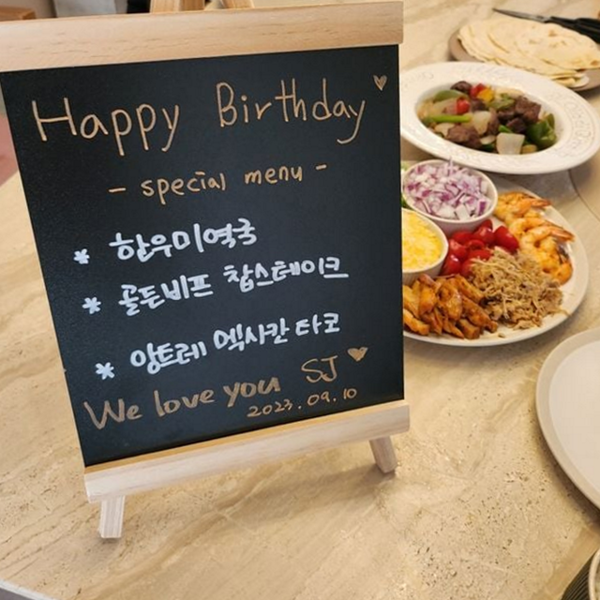 Happy Birthday♡
- special menu -
* 한우미역국
* 골든비프 찹스테이크
* 앙트레 멕시칸 타코
We love you SJ ♥
2023.09.10